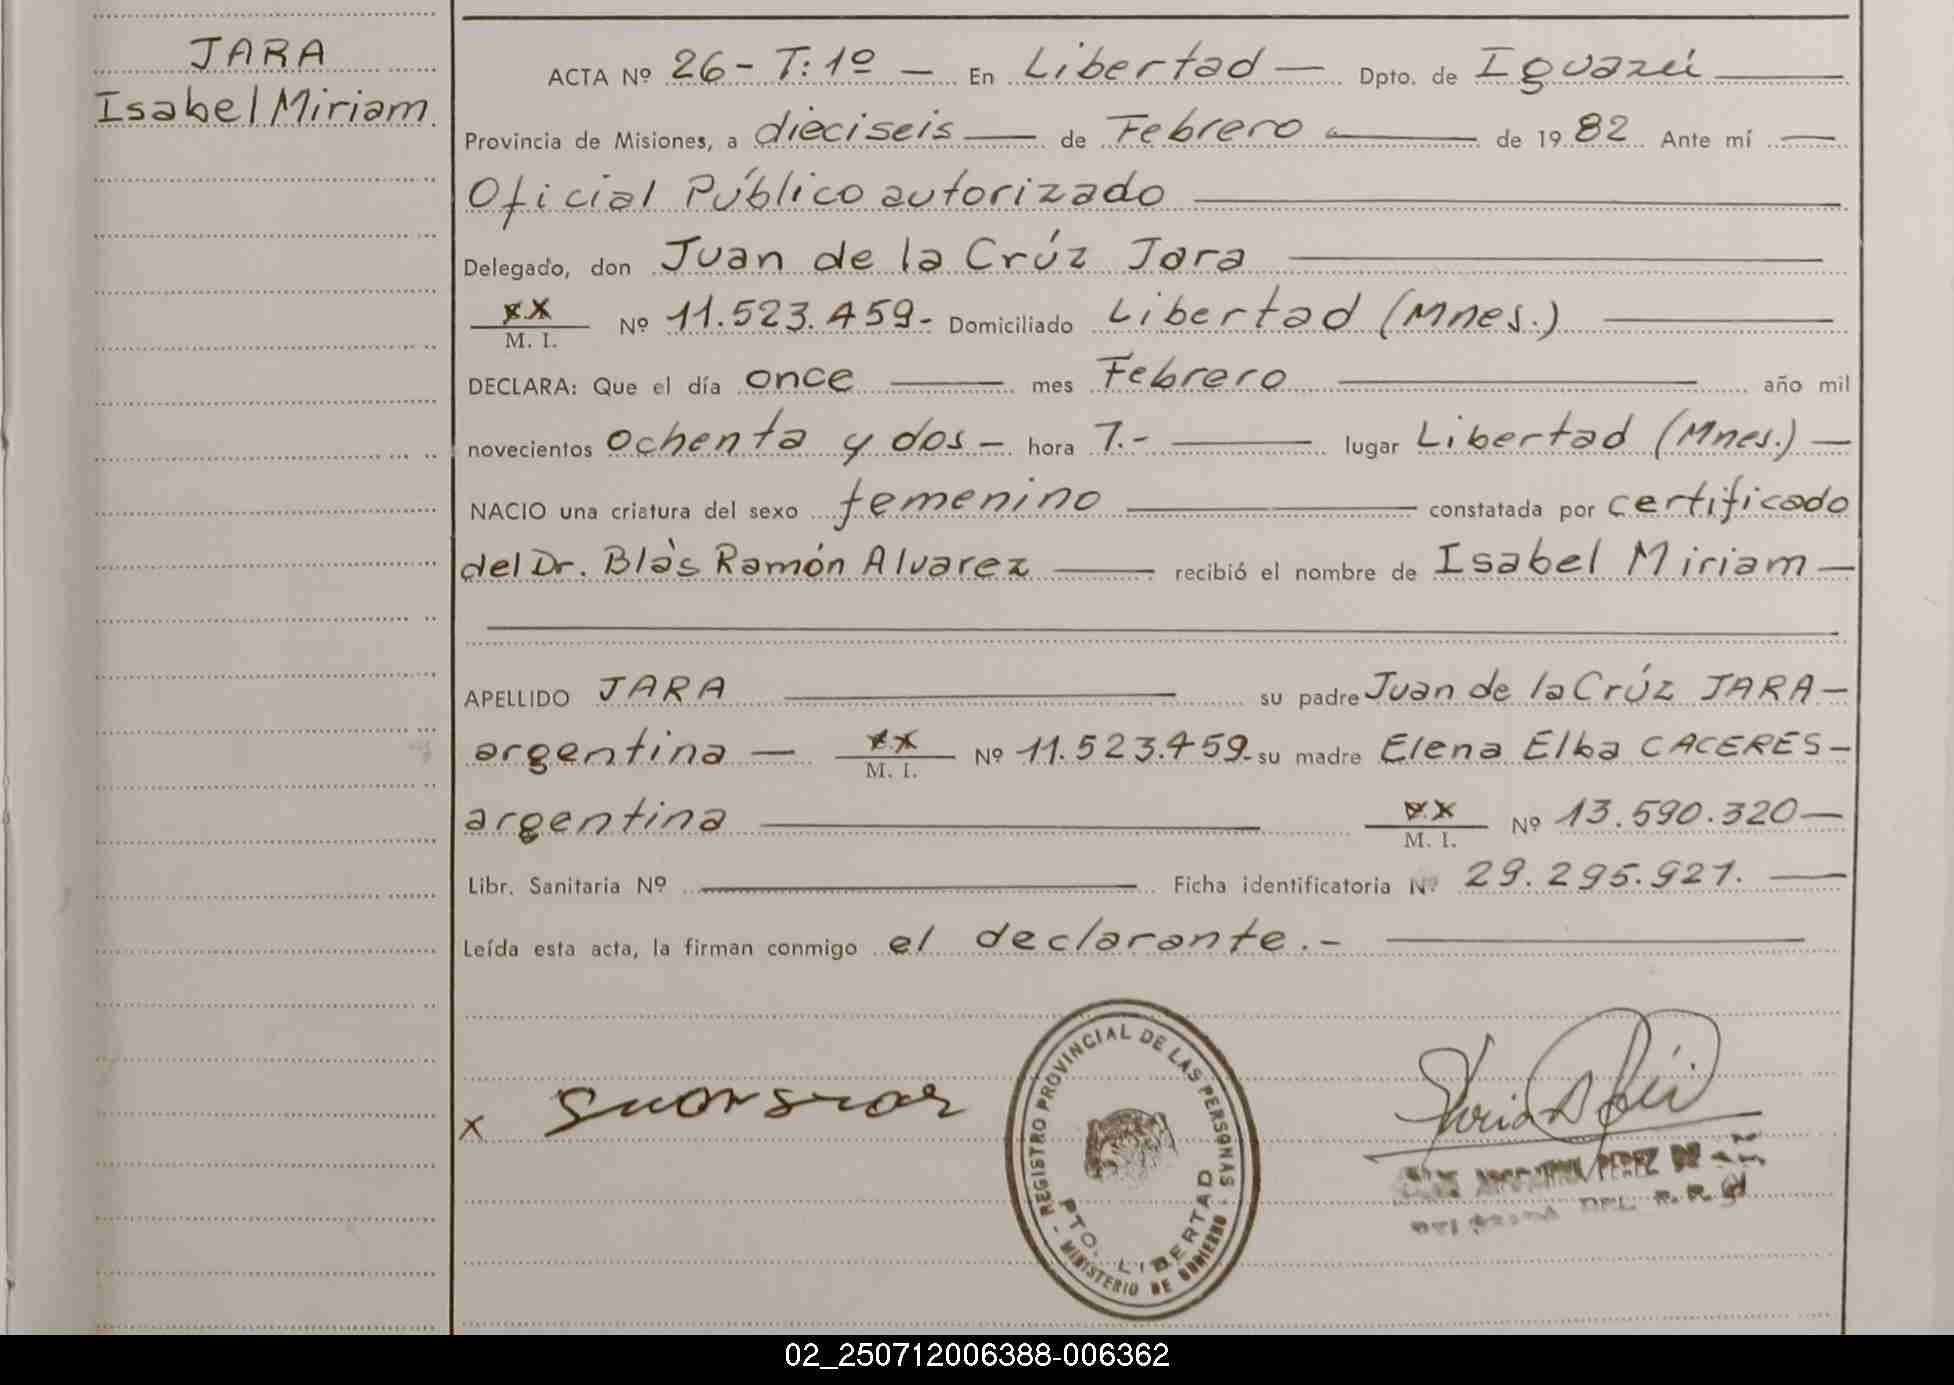 JARA
Isabel Miriam
ACTA Nº 26 - T: 1º — En Libertad — Dpto. de Iguazú
Provincia de Misiones, a dieciseis — de Febrero — de 1982 Ante mí —
Oficial Público autorizado
Delegado, don Juan de la Crúz Jara
xx M. I. Nº 11.523.459.- Domiciliado Libertad (Mnes.)
DECLARA: Que el día once — mes Febrero — año mil
novecientos ochenta y dos — hora 7.- — lugar Libertad (Mnes.) —
NACIO una criatura del sexo femenino — constatada por certificado
del Dr. Blàs Ramón Alvarez — recibió el nombre de Isabel Miriam —
APELLIDO JARA — su padre Juan de la Crúz JARA —
argentina — xx M. I. Nº 11.523.459.- su madre Elena Elba CACERES —
argentina — xx M. I. Nº 13.590.320 —
Libr. Sanitaria Nº — Ficha identificatoria Nº 29.295.921. —
Leída esta acta, la firman conmigo el declarante.-
x
REGISTRO PROVINCIAL DE LAS PERSONAS
PTO. LIBERTAD
- MINISTERIO DE GOBIERNO -
ARGENTINA PEREZ DE
DEL R. P.
02_250712006388-006362